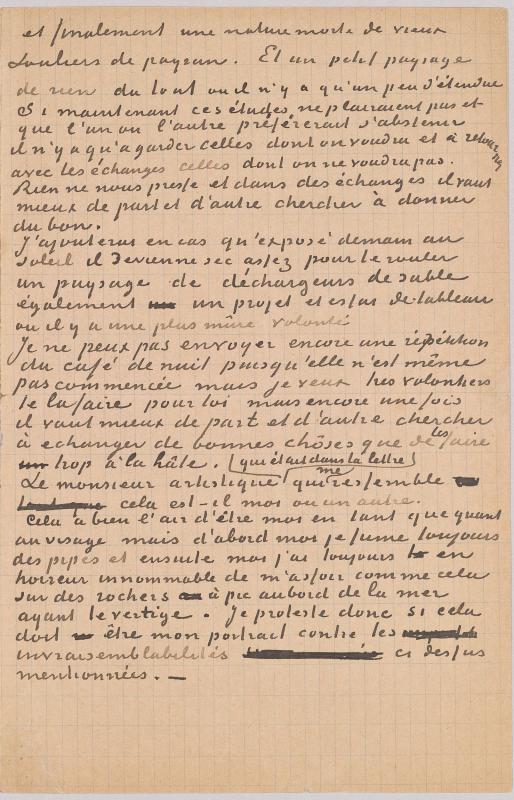 et finalement une nature morte de vieux
souliers de paysan. Et un petit paysage
de rien du tout ou il n'y a qu'un peu d'étendue
Si maintenant ces études ne plairaient pas et
que l'un ou l'autre préférerait s'abstenir
il n'y a qu'a garder celles dont on voudra et à retourner
avec les échanges celles dont on ne voudra pas.
Rien ne nous presse et dans des échanges il vaut
mieux de part et d'autre chercher à donner
du bon.
J'ajouterai en cas qu'exposé demain au
soleil il devienne sec assez pour le rouler
un paysage de déchargeurs de sable
également un projet et essai de tableau
ou il y a une plus mûre volonté
Je ne peux pas envoyer encore une répétition
du café de nuit puisqu'elle n'est même
pas commencée mais je veux tres volontiers
te la faire pour toi mais encore une fois
il vaut mieux de part et d'autre chercher
à echanger de bonnes chôses que de les faire
trop à la hâte. (qui était dans ta lettre)
Le monsieur artistique qui me ressemble
cela est-il moi ou un autre.
Cela à bien l'air d'être moi en tant que quant
au visage mais d'abord moi je fume toujours
des pipes et ensuite moi j'ai toujours eu en
horreur innommable de m'assoir comme cela
sur des rochers à pic au bord de la mer
ayant le vertige. Je proteste donc si cela
doit être mon portrait contre les
invraisemblabilités ci dessus
mentionnées. —